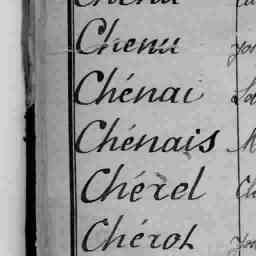 Chenu
Chénai
Chénais
Chérel
Chérot